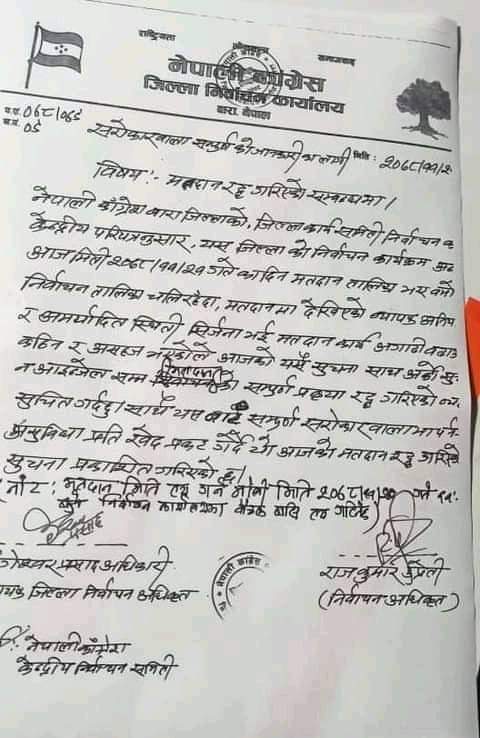 राष्ट्रियता प्रजातन्त्र समाजवाद
नेपाली काँग्रेस
जिल्ला निर्वाचन कार्यालय
बारा, नेपाल
प.सं. ०६८/०६९
च.नं. ०९
सरोकारवाला सम्पूर्णको जानकारीका लागी मिति: २०६८/११/२
विषय:- मतदान रद्द गरिएको सम्बन्धमा।
नेपाली काँग्रेस बारा जिल्लाको, जिल्ला कार्य समिती निर्वाचन क
केन्द्रीय परिपत्रनुसार, यस जिल्ला को निर्वाचन कार्यक्रम अनु
आज मिती २०६८/११/२१ गते का दिन मतदान तालिका भए बमो
निर्वाचन तालिका चलिरहेदा, मतदानमा देखिएको व्यापक अनिय
र अमर्यादित स्थिती सिर्जना भई मतदान कार्य अगाडी बढाउ
कठिन र असहज भएकोले आजको यसै सुचना साथ अर्को सु
न आइन्जेल सम्म मतदानको सम्पुर्ण प्रक्रया रद्द गरिएको व्य
सुचित गर्दछु। साथै यस बाट सम्पूर्ण सरोकारवालामा पर्न
असुविधा प्रति खेद प्रकट गर्दै यो आजको मतदान रद्द गरिएको
सुचना प्रकाशित गरिएको छ।
(नोट: मतदान मिति तय गर्न मिति २०६८/११/ गते
निर्वाचन कार्यालयमा बैठक बसि तय गरिने)
प्रसाद अधिकारी राजकुमार उप्रेती
जिल्ला निर्वाचन अधिकृत (निर्वाचन अधिकृत)
नेपाली काँग्रेस
केन्द्रीय निर्वाचन समिती